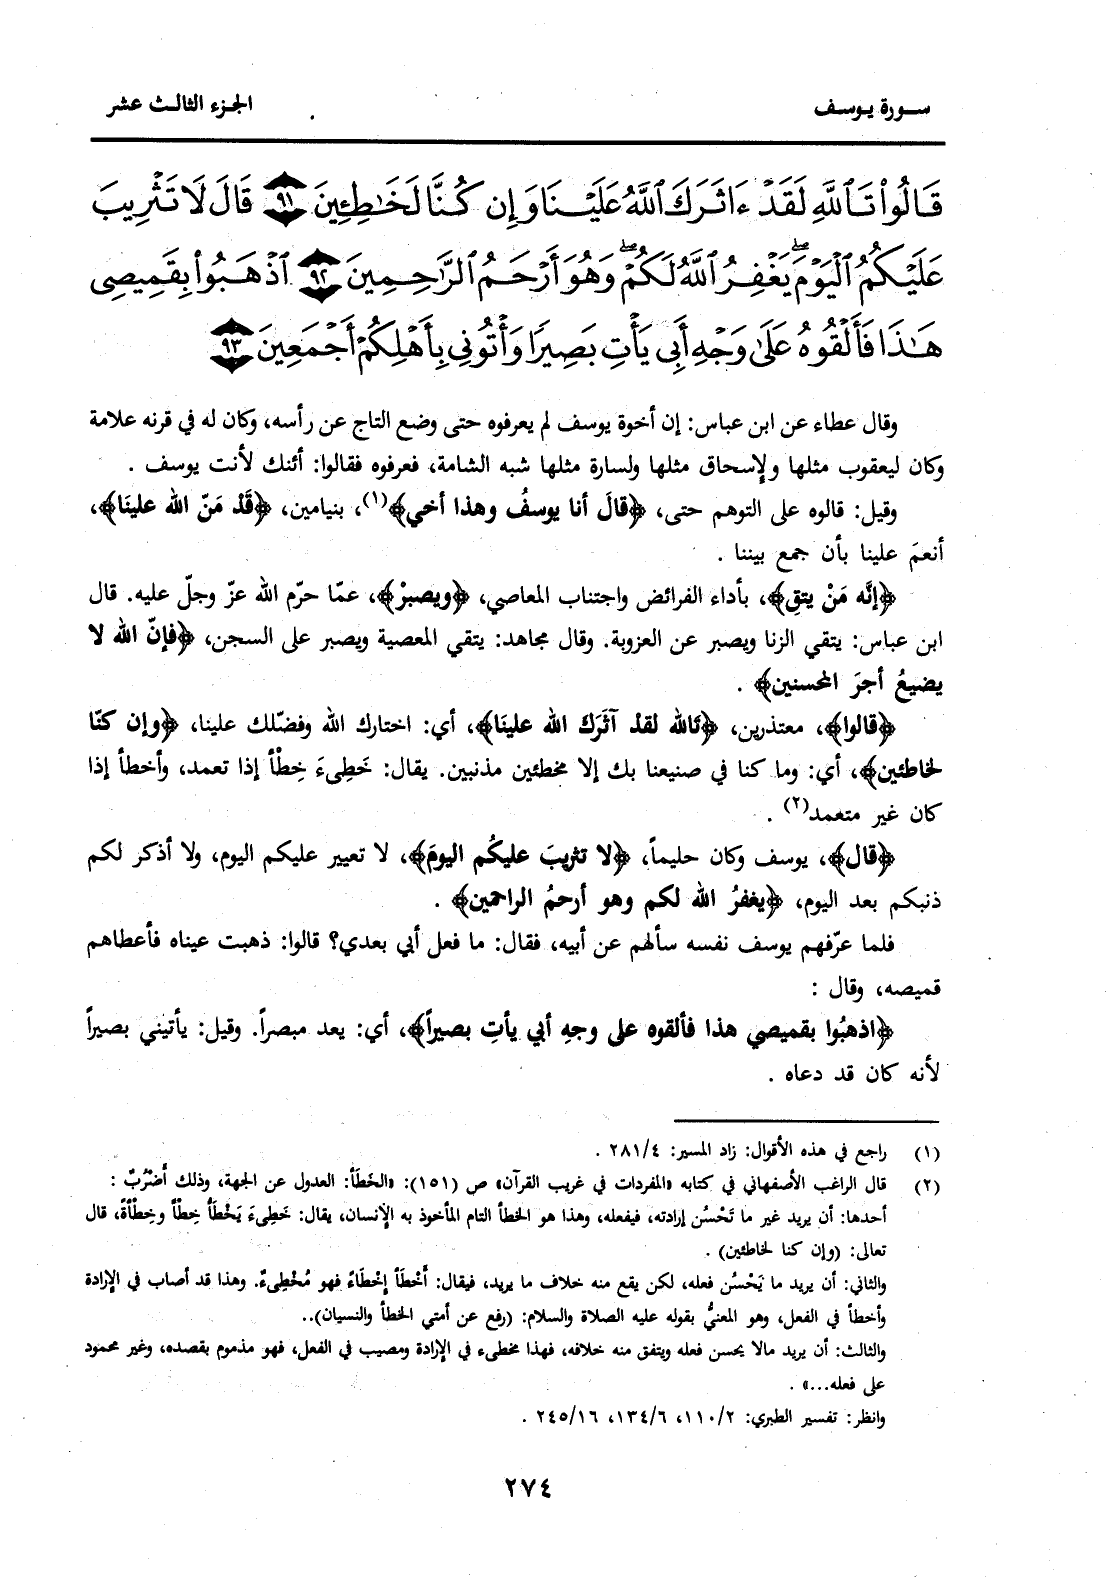 سورة يوسف
الجزء الثالث عشر
قَالُوا۟ تَٱللَّهِ لَقَدْ ءَاثَرَكَ ٱللَّهُ عَلَيْنَا وَإِن كُنَّا لَخَٰطِـِٔينَ ﴿٩١﴾ قَالَ لَا تَثْرِيبَ
عَلَيْكُمُ ٱلْيَوْمَ ۖ يَغْفِرُ ٱللَّهُ لَكُمْ ۖ وَهُوَ أَرْحَمُ ٱلرَّٰحِمِينَ ﴿٩٢﴾ ٱذْهَبُوا۟ بِقَمِيصِى
هَٰذَا فَأَلْقُوهُ عَلَىٰ وَجْهِ أَبِى يَأْتِ بَصِيرًا وَأْتُونِى بِأَهْلِكُمْ أَجْمَعِينَ ﴿٩٣﴾
وقال عطاء عن ابن عباس: إن أخوة يوسف لم يعرفوه حتى وضع التاج عن رأسه، وكان له في قرنه علامة
وكان ليعقوب مثلها ولإسحاق مثلها ولسارة مثلها شبه الشامة، فعرفوه فقالوا: أئنك لأنت يوسف .
وقيل: قالوه على التوهم حتى، ﴿قالَ أنا يوسفُ وهذا أخي﴾(١)، بنيامين، ﴿قَدْ مَنّ الله علينَا﴾،
أنعمَ علينا بأن جمع بيننا .
﴿إنَّه مَنْ يتقِ﴾، بأداء الفرائض واجتناب المعاصي، ﴿ويصبرْ﴾، عمّا حرّم الله عزّ وجلّ عليه. قال
ابن عباس: يتقي الزنا ويصبر عن العزوبة. وقال مجاهد: يتقي المعصية ويصبر على السجن، ﴿فإنّ الله لا
يضيعُ أجرَ المحسنين﴾ .
﴿قالوا﴾، معتذرين، ﴿تَالله لقدْ آثَرَكَ الله علينَا﴾، أي: اختارك الله وفضّلك علينا، ﴿وإن كنّا
لخاطئين﴾، أي: وما كنا في صنيعنا بك إلا مخطئين مذنبين. يقال: خَطِىءَ خِطْأً إذا تعمد، وأخطأ إذا
كان غير متعمد(٢) .
﴿قال﴾، يوسف وكان حليماً، ﴿لا تثريبَ عليكُم اليومَ﴾، لا تعيير عليكم اليوم، ولا أذكر لكم
ذنبكم بعد اليوم، ﴿يغفرُ الله لكم وهو أرحمُ الراحمين﴾ .
فلما عرّفهم يوسف نفسه سألهم عن أبيه، فقال: ما فعل أبي بعدي؟ قالوا: ذهبت عيناه فأعطاهم
قميصه، وقال :
﴿اذهبُوا بقميصي هذا فألقوه على وجهِ أبي يأتِ بصيراً﴾، أي: يعد مبصراً. وقيل: يأتيني بصيراً
لأنه كان قد دعاه .
(١) راجع في هذه الأقوال: زاد المسير: ٢٨١/٤ .
(٢) قال الراغب الأصفهاني في كتابه «المفردات في غريب القرآن» ص (١٥١): «الخَطَأُ: العدول عن الجهة، وذلك أَضْرُبٌ :
أحدها: أن يريد غير ما تَحْسُن إرادته، فيفعله، وهذا هو الخطأ التام المأخوذ به الإنسان، يقال: خَطِىءَ يَخْطَأُ خِطْأً وخِطْأَةً، قال
تعالى: (وإن كنا لخاطئين) .
والثاني: أن يريد ما يَحْسُن فعله، لكن يقع منه خلاف ما يريد، فيقال: أَخْطَأَ إخْطَاءً فهو مُخْطِىءٌ. وهذا قد أصاب في الإرادة
وأخطأ في الفعل، وهو المعنيُّ بقوله عليه الصلاة والسلام: (رفع عن أمتي الخطأ والنسيان)..
والثالث: أن يريد مالا يحسن فعله ويتفق منه خلافه، فهذا مخطىء في الإرادة ومصيب في الفعل، فهو مذموم بقصده، وغير محمود
على فعله...» .
وانظر: تفسير الطبري: ١١٠/٢، ١٣٤/٦، ٢٤٥/١٦ .
٢٧٤